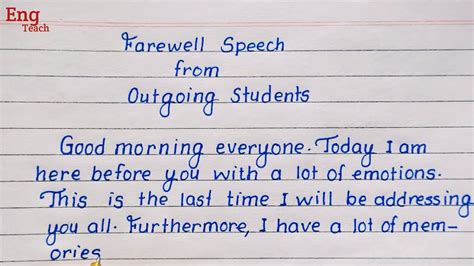 Eng
Teach
Farewell Speech
from
Outgoing Students
Good morning everyone. Today I am
here before you with a lot of emotions.
This is the last time I will be addressing
you all. Furthermore, I have a lot of mem-
ories